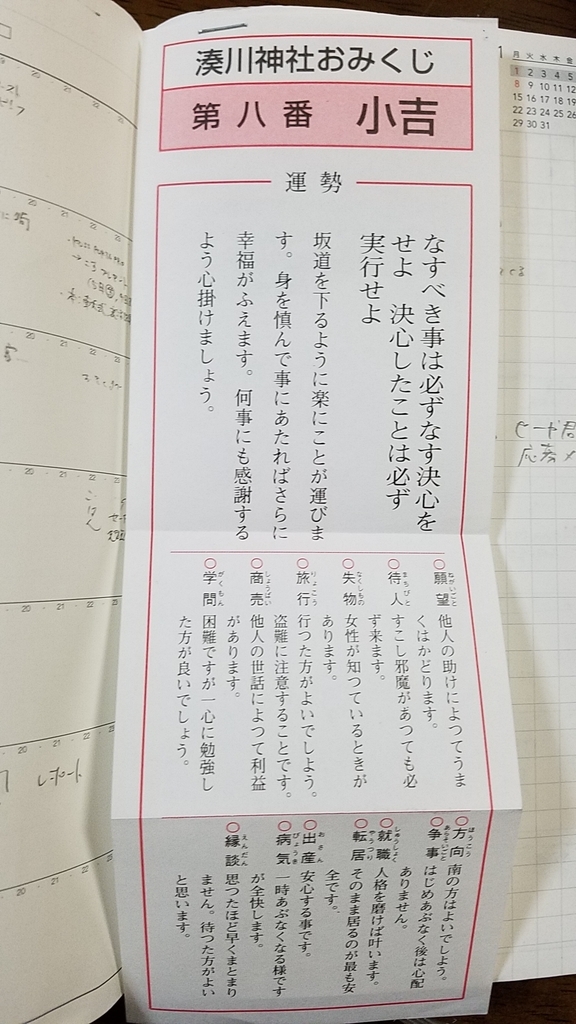 湊川神社おみくじ
第八番 小吉
運勢
なすべき事は必ずなす決心を
せよ 決心したことは必ず
実行せよ
坂道を下るように楽にことが運びま
す。身を慎んで事にあたればさらに
幸福がふえます。何事にも感謝する
よう心掛けましょう。
○願望 ねがいごと
他人の助けによつてうま
くはかどります。
○待人 まちびと
すこし邪魔があつても必
ず来ます。
○失物 なくしもの
女性が知つているときが
あります。
○旅行 りょこう
行つた方がよいでしよう。
盗難に注意することです。
○商売 しょうばい
他人の世話によつて利益
があります。
○学問 がくもん
困難ですが一心に勉強し
た方が良いでしょう。
○方向 ほうこう
南の方はよいでしよう。
○争事 あらそいごと
はじめあぶなく後は心配
ありません。
○就職 しゅうしょく
人格を磨けば叶います。
○転居 やうつり
そのまま居るのが最も安
全です。
○出産 おさん
安心する事です。
○病気 びょうき
一時あぶなくなる様です
が全快します。
○縁談 えんだん
思つたほど早くまとまり
ません。待つた方がよい
と思います。
月 火 水 木 金
1 2 3 4 5
8 9 10 11 12
15 16 17 18 19
22 23 24 25 26
29 30 31
レポート